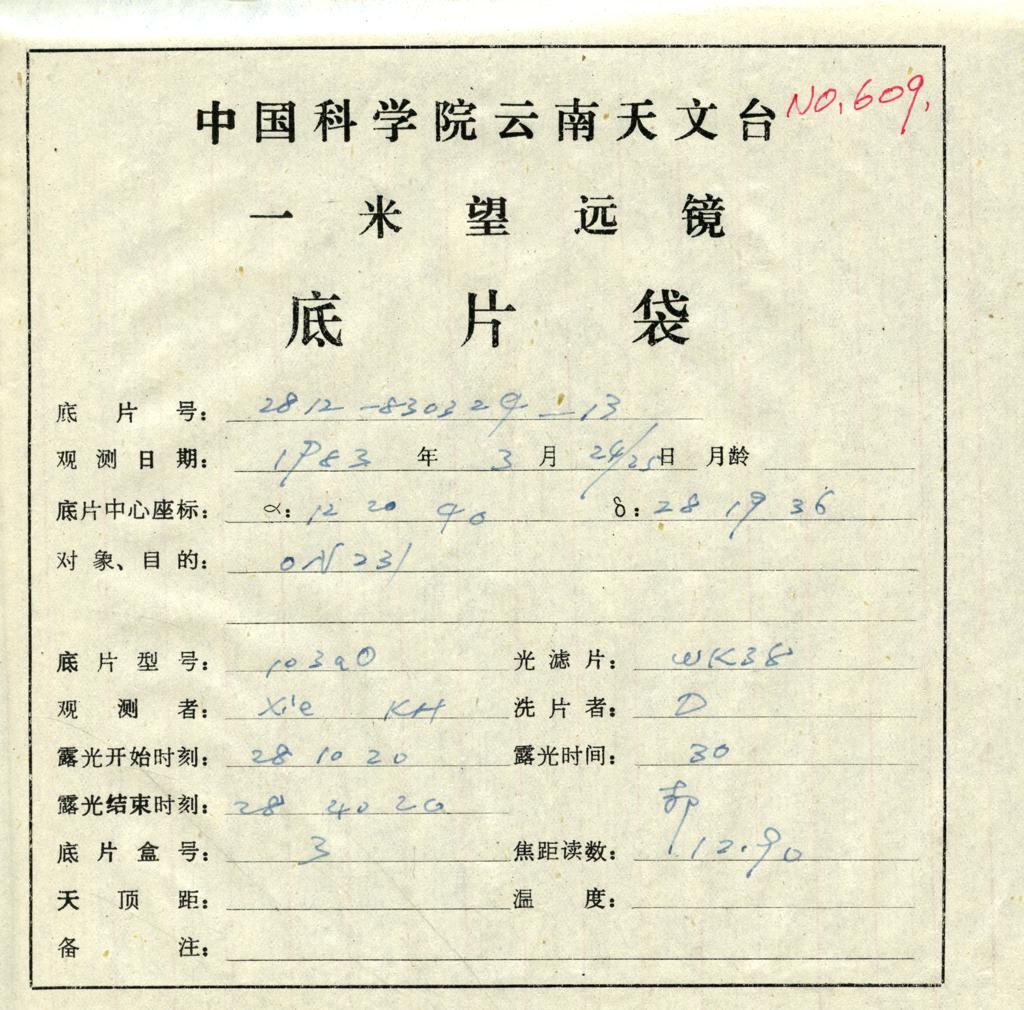 中国科学院云南天文台 NO.609.
一米望远镜
底片袋
底片号: 2812-830329-13
观测日期: 1983年3月24/25日 月龄
底片中心座标: α: 12 20 40 δ: 28 19 36
对象、目的: ON 231
底片型号: 103aO 光滤片: WK38
观测者: Xie KH 洗片者: D
露光开始时刻: 28 10 20 露光时间: 30
露光结束时刻: 28 40 20
底片盒号: 3 焦距读数: 112.90
天顶距: 温度:
备注: